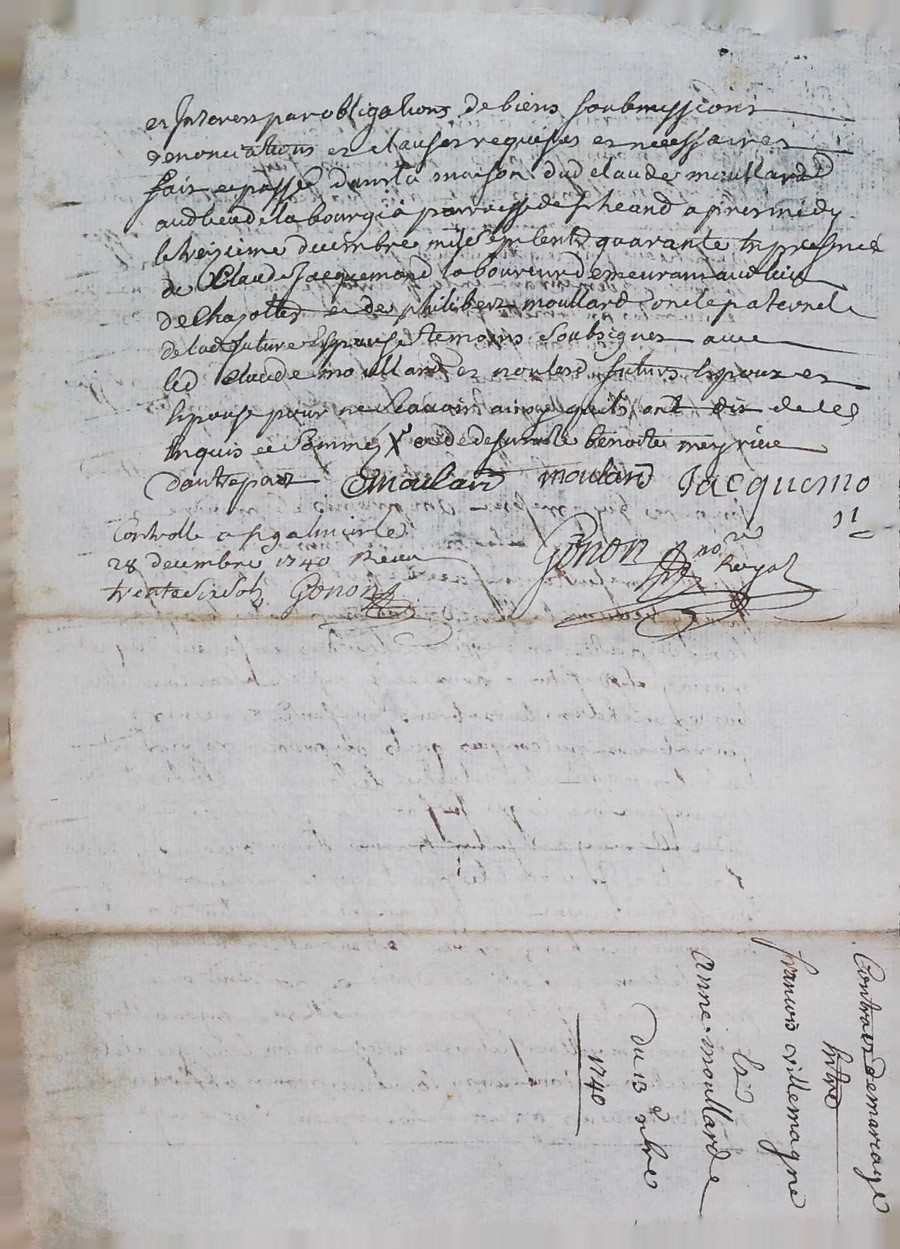 et Interest par obligations de biens soubmissions
renonciations et clauses requises et necessaires
fait et passé dans la maison dud claude moullard
aud lieu de la bourgiá parroisse de st heand apres midy
le treizieme decembre mil sept cent quarante In presence
de Claude Jacquemond laboureur demeurant aud lieu
de Chazottes et de philibert moullard oncle paternel
de lad future Espouse temoins soubsignes avec
led Claude moullard et non lesd futurs Epoux et
Epouse pour ne sçavoir ainsy quils ont dit de ce
Enquis et sommés X de defunte benoite meyrieu
dautre part Cmoulard moulard Jacquemo
Gonon no.re Royal
Controllé a st galmier le
28 decembre 1740 Receu
trente six sols Gonon
Contrat de mariage
Entre
francois villemagne
Et
anne moullarde
du 13 xbre
1740